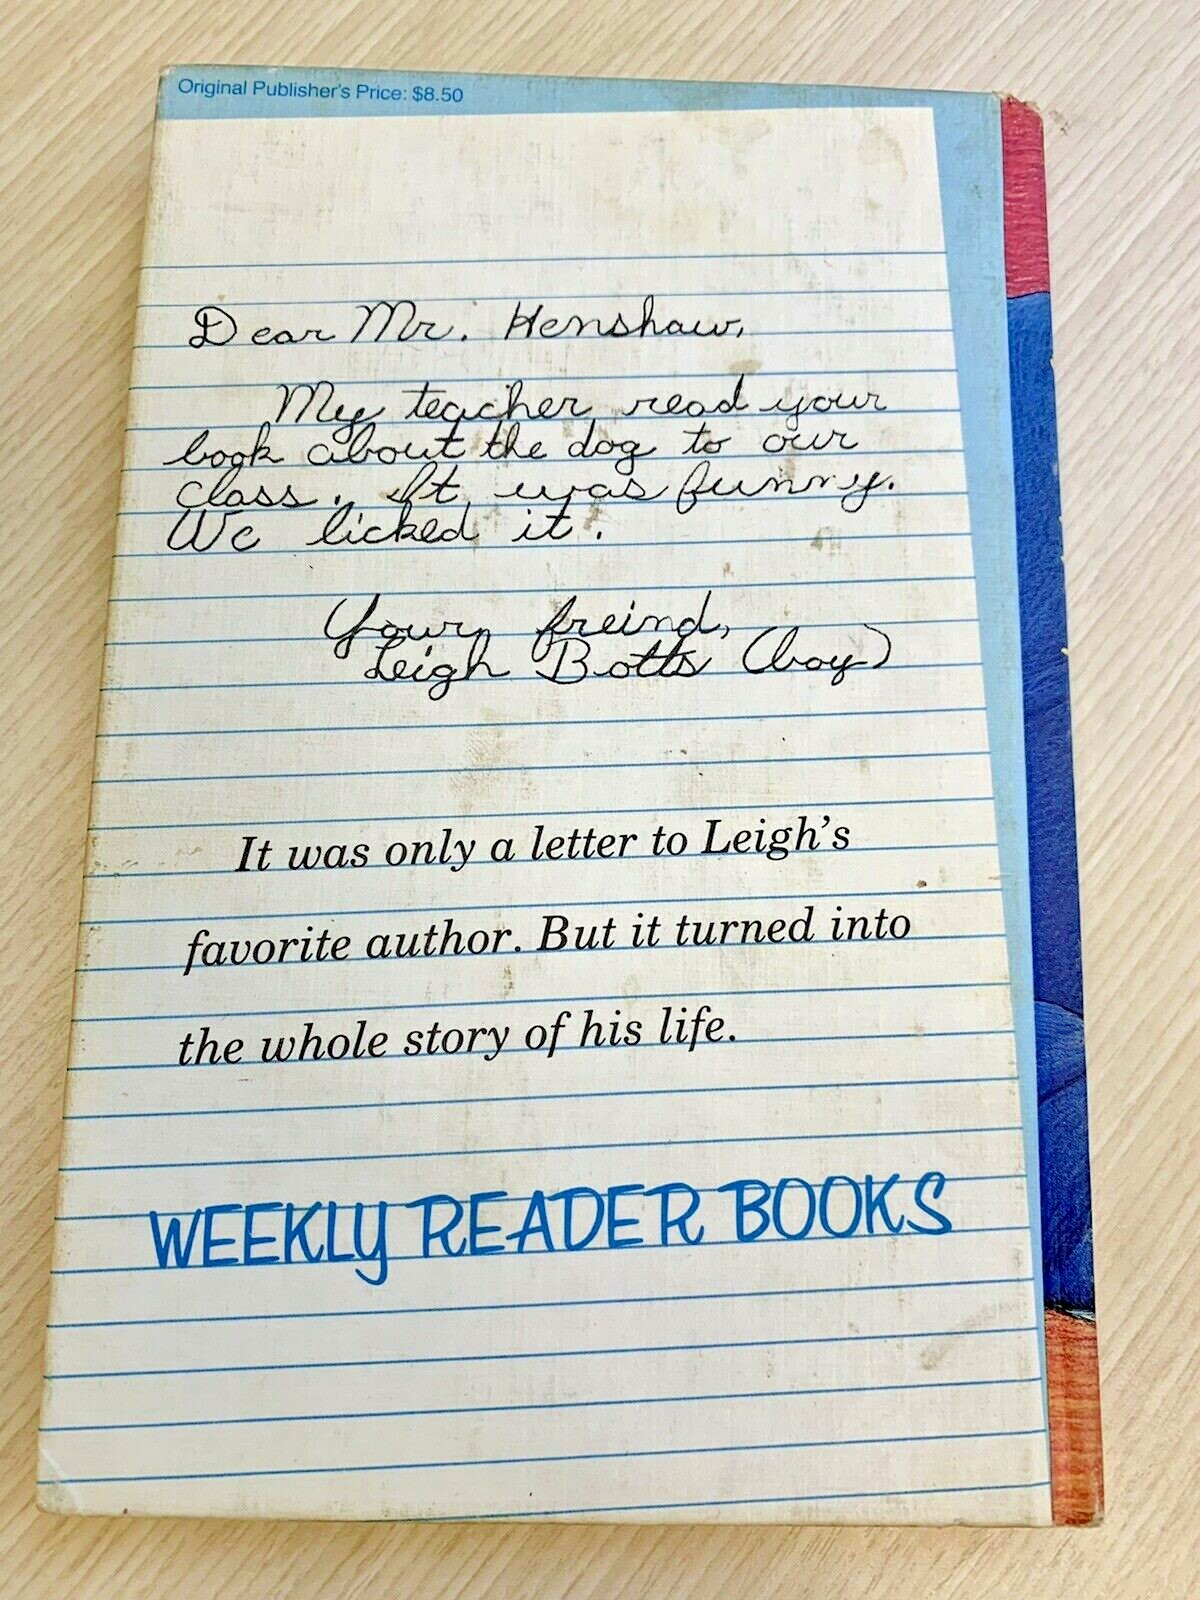 Original Publisher's Price: $8.50
Dear Mr. Henshaw,
My teacher read your
book about the dog to our
class. It was funny.
We licked it.
Your freind,
Leigh Botts (boy)
It was only a letter to Leigh's
favorite author. But it turned into
the whole story of his life.
WEEKLY READER BOOKS